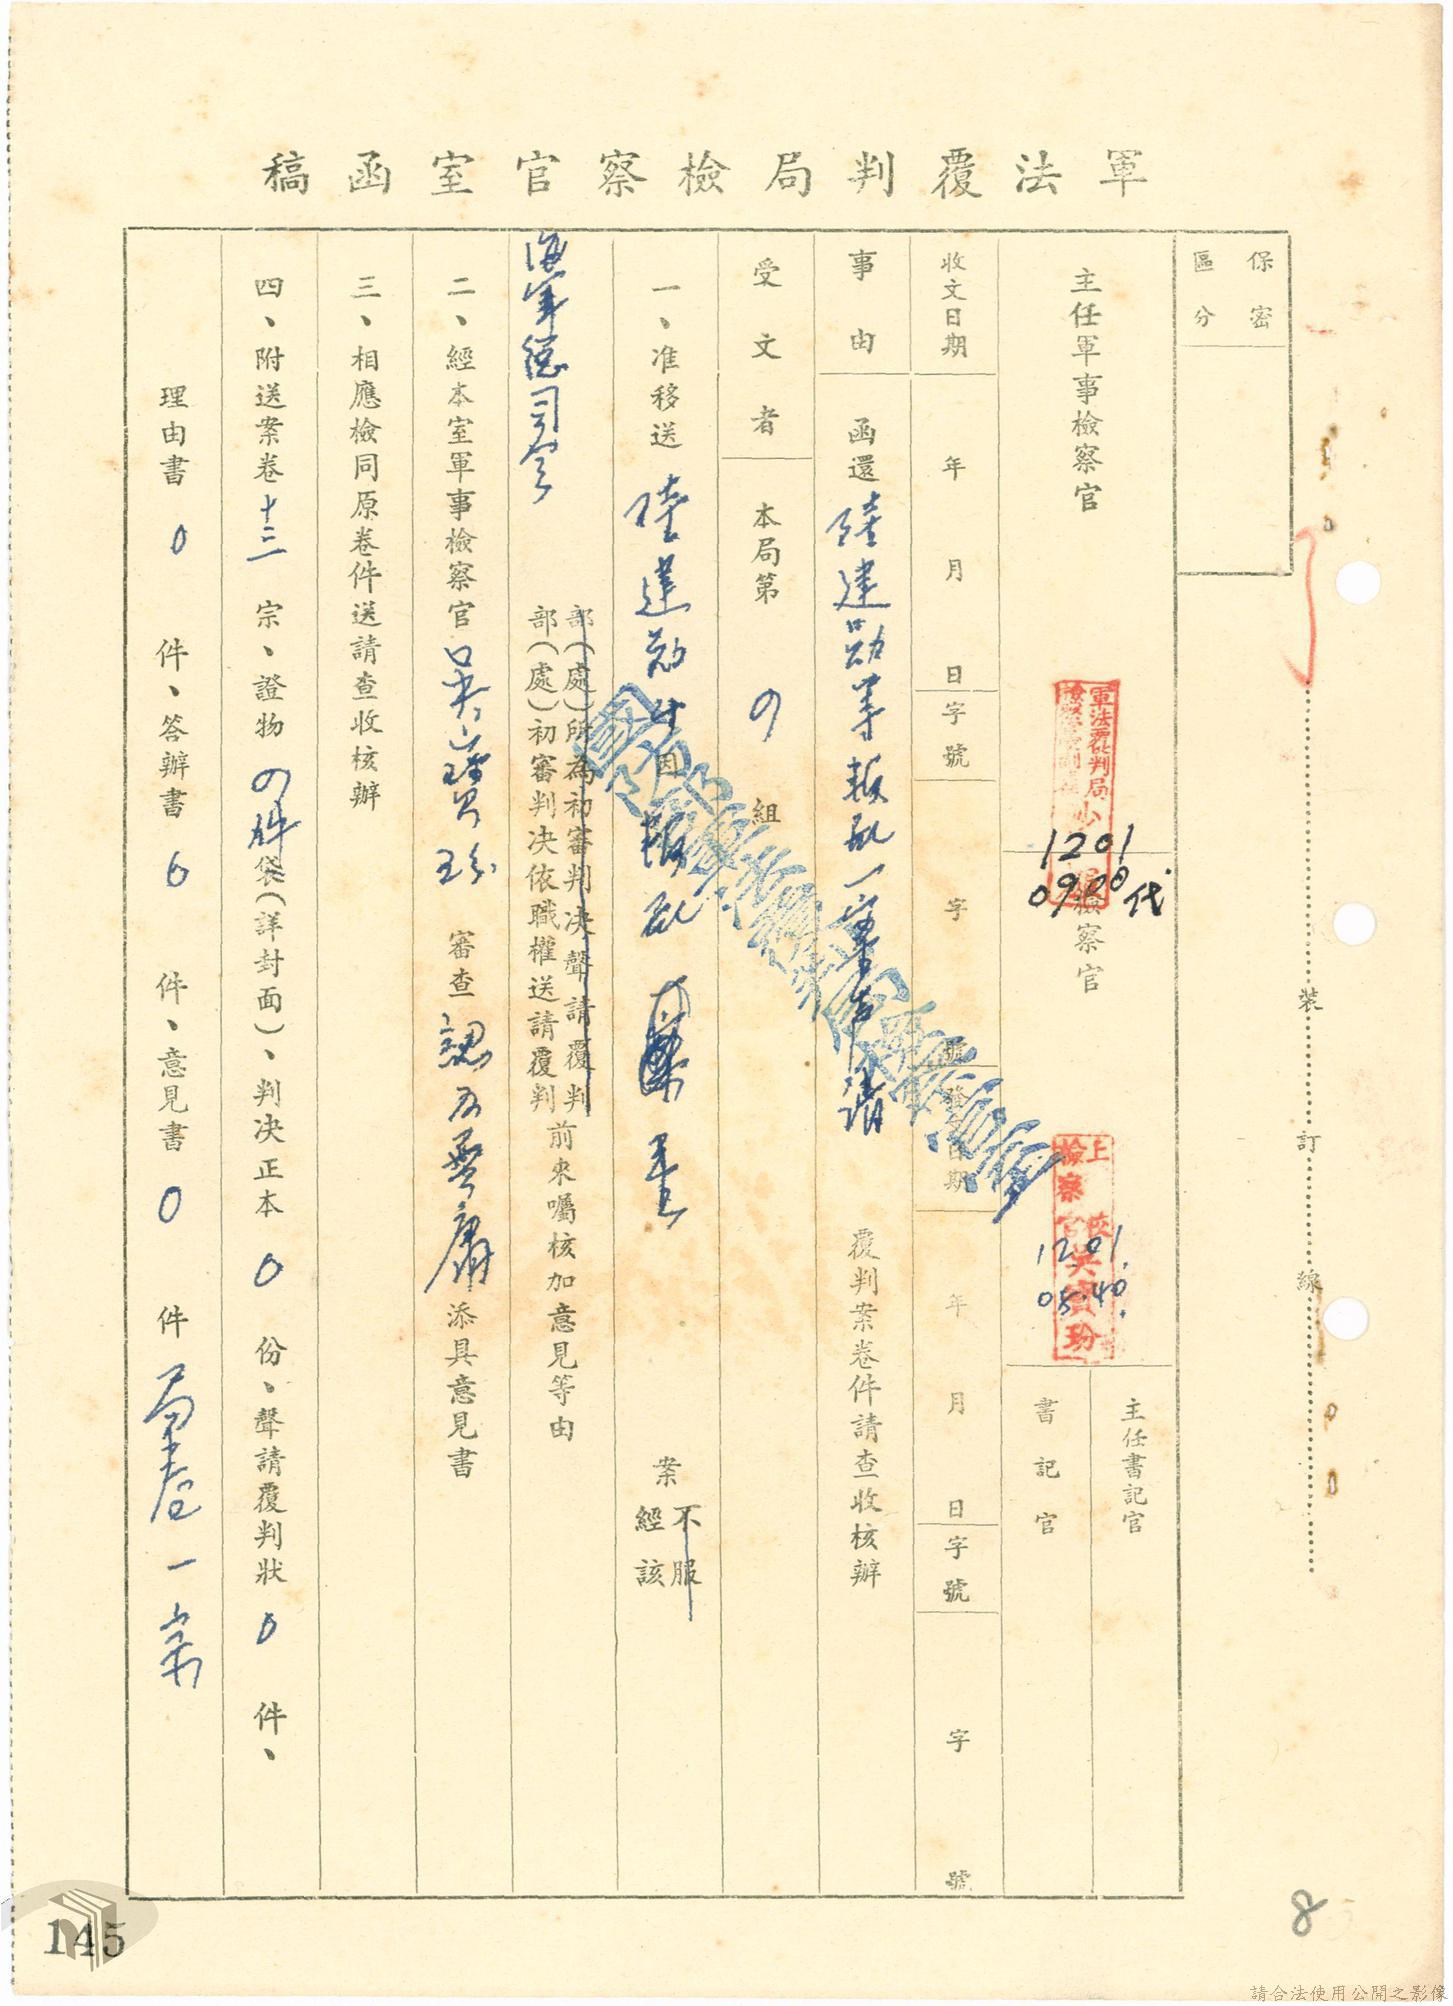 軍法覆判局檢察官室函稿
保密
區分
主任軍事檢察官
軍法覆判局
檢察官
1201
0900代
上校
檢察官吳寶玢
1201.
05.40.
主任書記官
書記官
收文日期 年 月 日 字號 字 號 發文日期 年 月 日 字號 字 號
事由 函還陸建勛等叛亂一案聲請覆判案卷件請查收核辦
受文者 本局第四組
一、准移送陸建勛等因叛亂 案不服
經該
海軍總司令
部(處)所為初審判決聲請覆判
部(處)初審判決依職權送請覆判
前來囑核加意見等由
二、經本室軍事檢察官吳寶玢審查認為毋庸添具意見書
三、相應檢同原卷件送請查收核辦
四、附送案卷十三宗、證物四件袋(詳封面)、判決正本0份、聲請覆判狀0件、
理由書0件、答辯書6件、意見書0件局卷一宗
國防部軍法覆判局檢察官室
裝
訂
線
145
8
請合法使用公開之影像